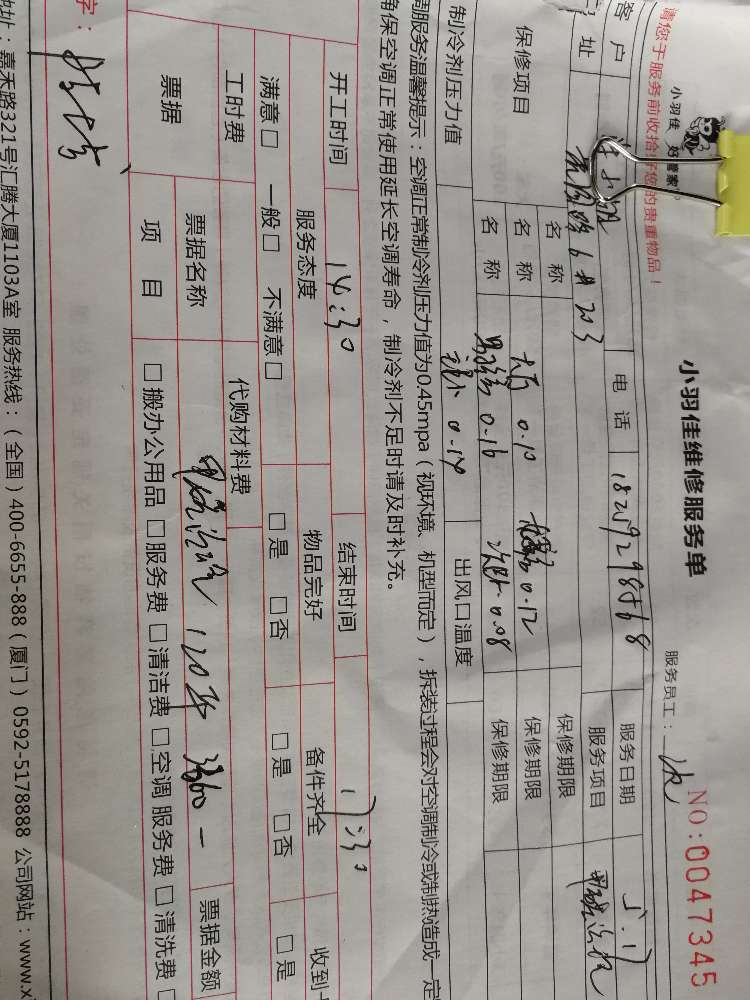 请您于服务前收拾好您的贵重物品！
小羽佳 好管家
小羽佳维修服务单
NO:0047345
服务员工：
客户
电话 18259298568
服务日期 5.17
址 6#203
服务项目
保修项目
名称
保修期限
名称 大厅 0.10 0.12
保修期限
名称 男孩房 0.16 次卧 0.08
保修期限
制冷剂压力值
0.14
出风口温度
调服务温馨提示：空调正常制冷剂压力值为0.45mpa（视环境、机型而定），拆装过程会对空调制冷或制热造成一定
确保空调正常使用延长空调寿命，制冷剂不足时请及时补充。
开工时间 14:30
结束时间 17:30
服务态度
物品完好
备件齐全
收到
满意□ 一般□ 不满意□
□是 □否
□是 □否
□是
工时费
代购材料费
票据
票据名称
甲醛治理 120平 3360—
票据金额
项目
□搬办公用品 □服务费 □清洁费 □空调服务费 □清洗费 □
字：
地址：嘉禾路321号汇腾大厦1103A室 服务热线：（全国）400-6655-888（厦门）0592-5178888 公司网站：www.x